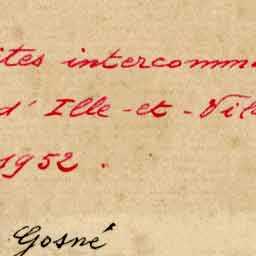 ites intercomm
d'Ille-et-Vil
1952.
Gosné